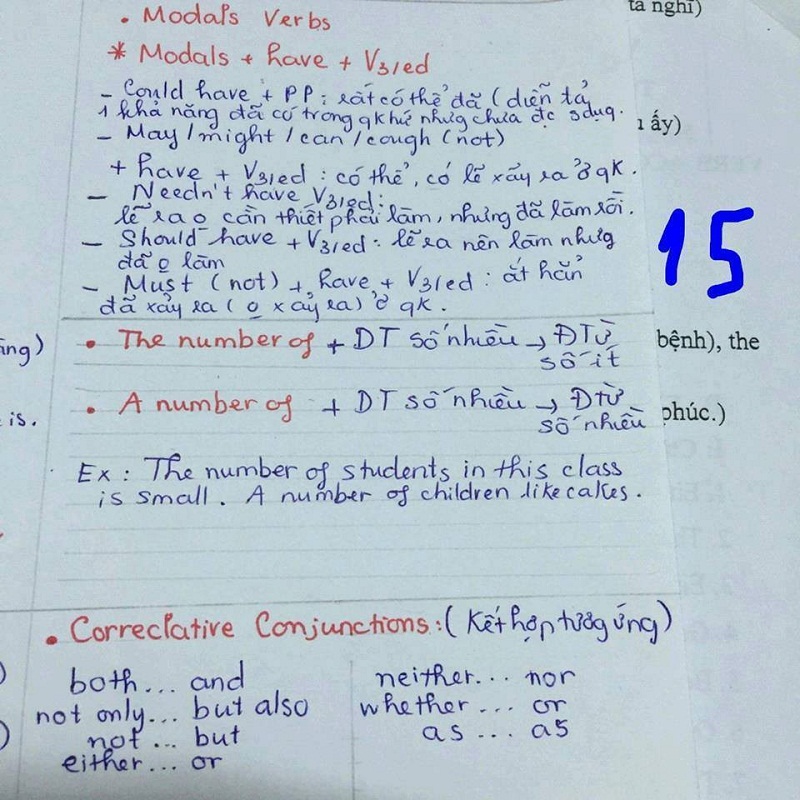 ta nghĩ)
• Modals Verbs
* Modals + have + V3/ed
- Could have + PP : rất có thể đã ( diễn tả
1 khả năng đã có trong qkhứ nhưng chưa đc sdụg.
ấy)
- May / might / can / cough (not)
+ have + V3/ed : có thể, có lẽ xẩy ra ở qk.
- Needn't have V3/ed :
lẽ ra o cần thiết phải làm, nhưng đã làm rồi.
- Should have + V3/ed : lẽ ra nên làm nhưg
đã o làm
15
- Must (not) + have + V3/ed : ắt hẳn
đã xảy ra ( o xảy ra) ở qk.
• The number of + DT số nhiều → ĐTừ
số ít
bệnh), the
• A number of + DT số nhiều → Đtừ
số nhiều
is.
phúc.)
Ex : The number of students in this class
is small. A number of children like cakes.
• Correclative Conjunctions : ( Kết hợp tương ứng)
both... and
neither... nor
not only... but also
whether ... or
not ... but
as ... as
either... or